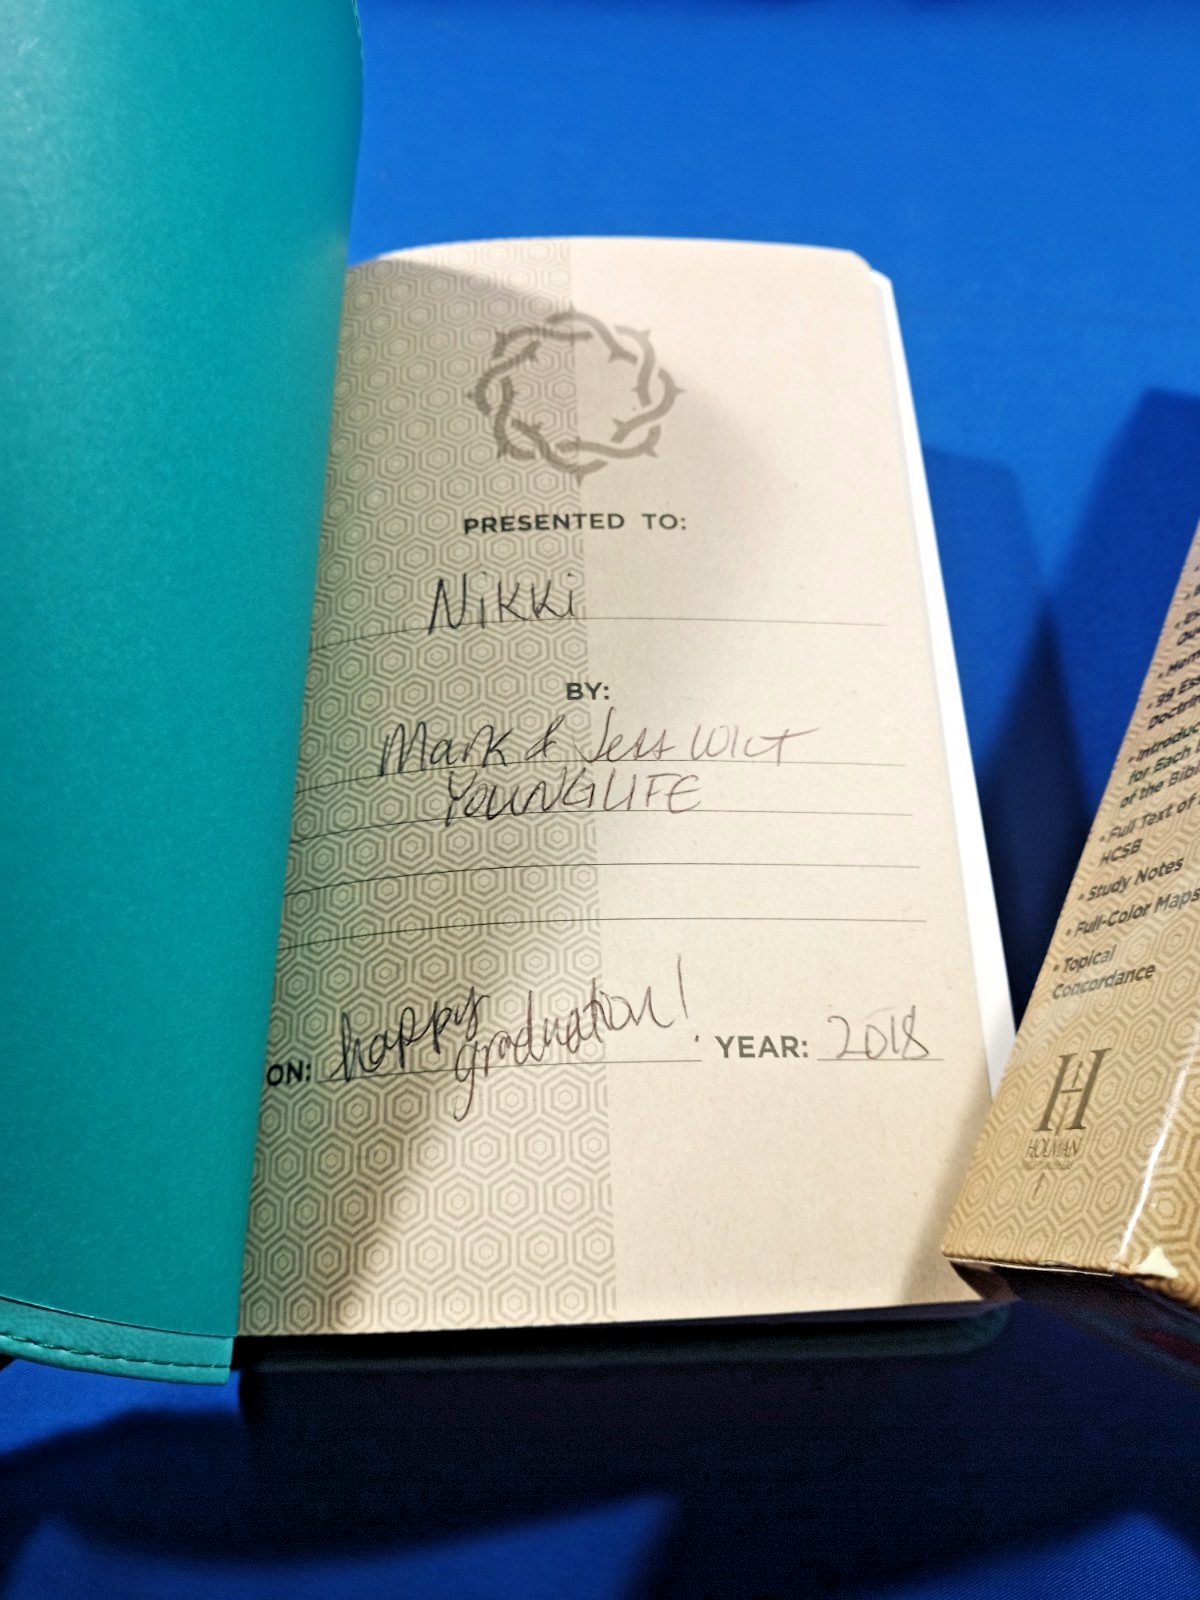 PRESENTED TO:
Nikki
BY:
Mark & Jess Wilt
YOUNGLIFE
ON: happy graduation! YEAR: 2018
Doctrin
Introduc
for Each
of the Bibl
• Full Text of
HCSB
• Study Notes
• Full-Color Maps
• Topical
Concordance
H
HOLMAN